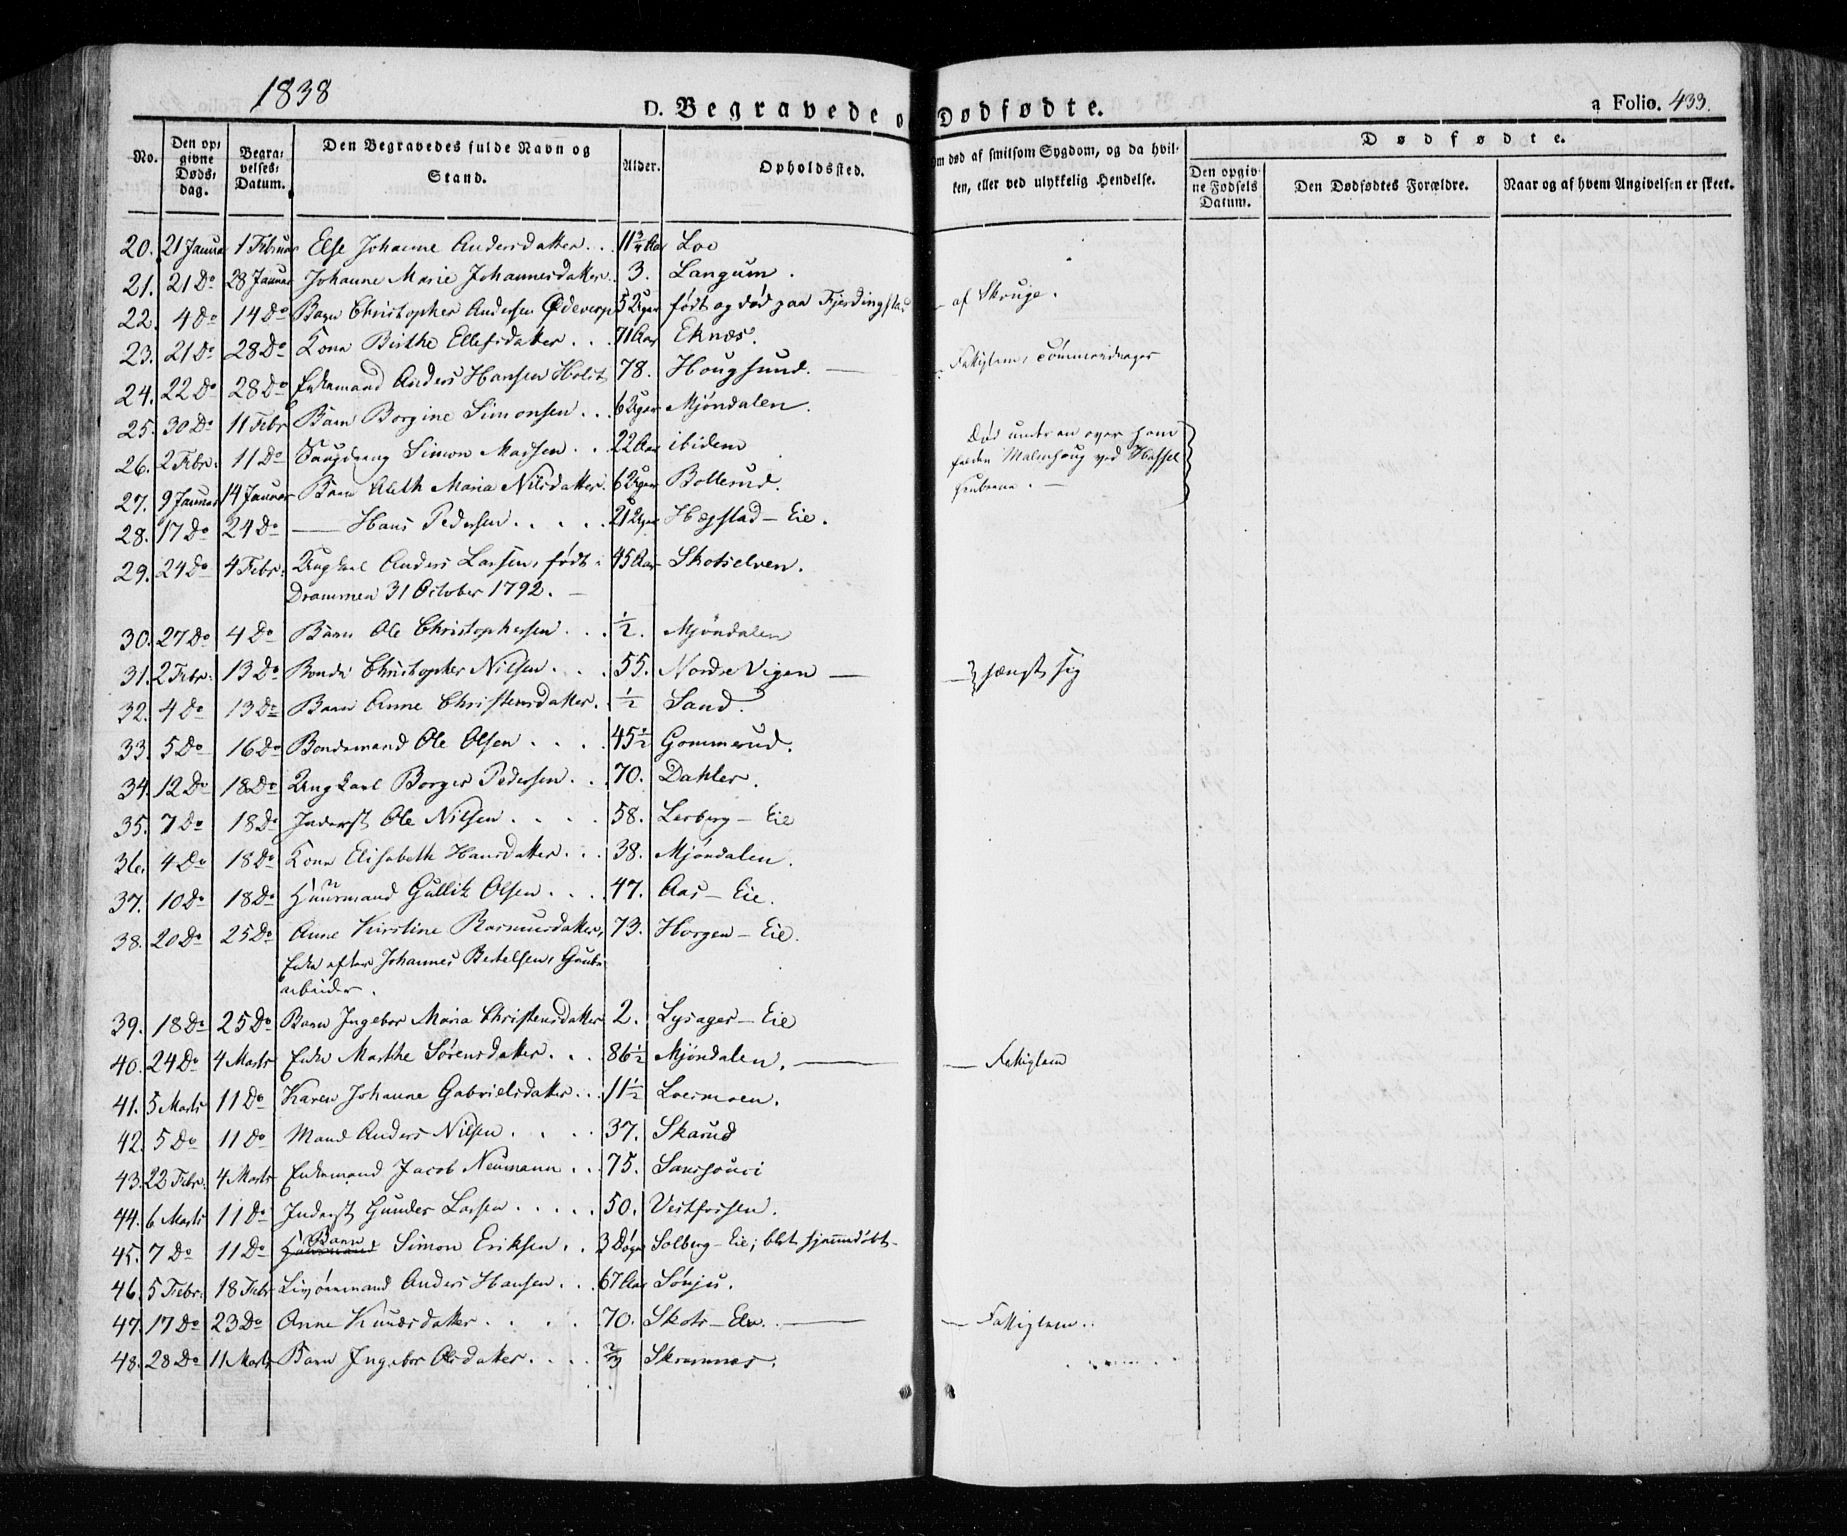 1838
D. Begravede o Dødfødte.
a Folio. 433.
No. Den op= givne Døds= dag. Begra= velses= Datum. Den Begravedes fulde Navn og Stand. Alder. Opholdssted. Om død af smitsom Sygdom, og da hvil= ken, eller ved ulykkelig Hendelse. Dødfødte.
Den opgiv= ne Fødsels Datum. Den Dødfødtes Forældre. Naar og af hvem Angivelsen er skeet.
20. 21 Januar 1 Februar Else Johanne Andersdatter . . 11 3/4 Aar Loe
21. 21 Do 28 Januar Johanne Marie Johannesdatter 3. Langum .
22. 4 Do 14 Do Barn Christopher Andersen 5 Uger født og død paa Fjerdingstad af Skruge.
23. 21 Do 28 Do Kone Birthe Ellefsdatter . . . 71 Aar Eknæs.
24. 22 Do 28 Do Enkemand Anders Hansen Holst 78. Hougsund. — Fattiglem,
25. 30 Do 11 Febr Barn Borgine Simonsen . . 6 Uger Mjøndalen.
26. 2 Febr. 11 Do Simon Madsen . . 22 Aar ibidem Død under en over ham
falden Malmhaug ved Hassel
Gruberne . —
27. 9 Januar 14 Januar Barn Aleth Maria Nilsdatter. 6 Uger Bollerud.
28. 17 Do 24 Do — Hans Pedersen . . . . . 21 Uger Hægstad — Eie .
29. 24 Do 4 Febr. Ungkarl Anders Larsen, født i 45 Aar Skotselven.
Drammen 31 October 1792. —
30. 27 Do 4 Do Barn Ole Christophersen . . . 1/2. Mjöndalen
31. 2 Febr. 13 Do Bonde Christopher Nilsen . . . 55. Nordre Vigen — — hængt sig
32. 4 Do 13 Do Barn Anne Christensdatter . 1/2 Sand.
33. 5 Do 16 Do Bondemand Ole Olsen . . . . 45 1/2 Gommerud.
34. 12 Do 18 Do Ungkarl Borger Pedersen . . 70. Dahler .
35. 7 Do 18 Do Inderst Ole Nilsen . . . . 58. Lerberg — Eie
36. 4 Do 18 Do Kone Elisabeth Hansdatter . . . 38. Mjøndalen.
37. 10 Do 18 Do Huusmand Gullik Olsen . . . 47. Aas — Eie.
38. 20 Do 25 Do Anne Kirstine Rasmusdatter, 73. Horgen — Eie.
Enke efter Johannes Bertelsen, Grube
arbeider .
39. 18 Do 25 Do Barn Ingebor Maria Christensdatter 2. Lysager — Eie
40. 24 Do 4 Marts Enke Marthe Sørensdatter . . . 86 1/2 Mjøndalen. — — Fattiglem
41. 5 Marts 11 Do Karen Johanne Gabrielsdatter . . . 11 1/2 Loesmoen.
42. 5 Do 11 Do Mand Anders Nilsen . . . . 37. Skarud
43. 22 Febr. 4 Marts Enkemand Jacob Neumann . . 75. Sanssouci
44. 6 Marts 11 Do Inderst Gunder Larsen . . . . . 50. Vestfossen .
45. 7 Do 11 Do Barn Simon Eriksen . . 3 Døgn Solberg — Eie; blot hjemmedøbt—
46. 5 Febr. 18 Febr Anders Hansen . . . 67 Aar Sønju.
47. 17 Do 23 Do Anne Knudsdatter . . . . . 70. Skots — Elv. — — Fattiglem.
48. 28 Do 11 Marts Barn Ingebor Olsdatter . . . . 2/3 Skramnes.